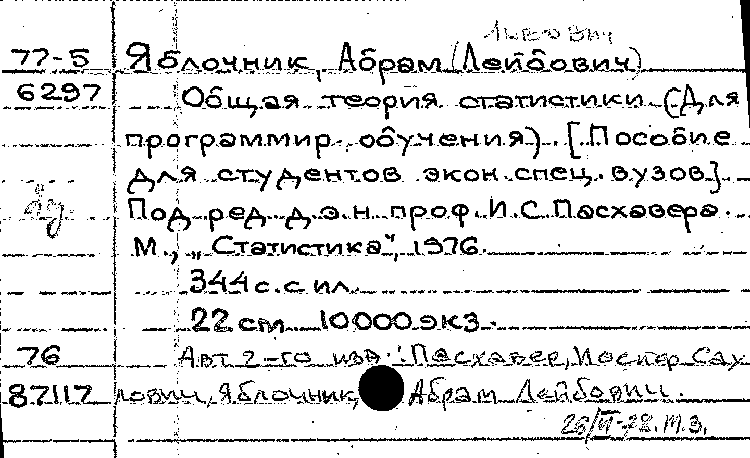 Львович
77-5 Яблочник, Абрам (Лейбович)
6297 Общая теория статистики (Для
программир. обучения). [Пособие
для студентов экон. спец. вузов].
Под ред. д.э.н. проф. И.С. Пасхавера.
М., „Статистика", 1976.
344 с. с ил.
22 см 10000 экз.
76 Авт. 2-го изд.: Пасхавер, Иосиф Сау
87117 лович, Яблочник, Абрам Лейбович.
26/VI-78. М.З.